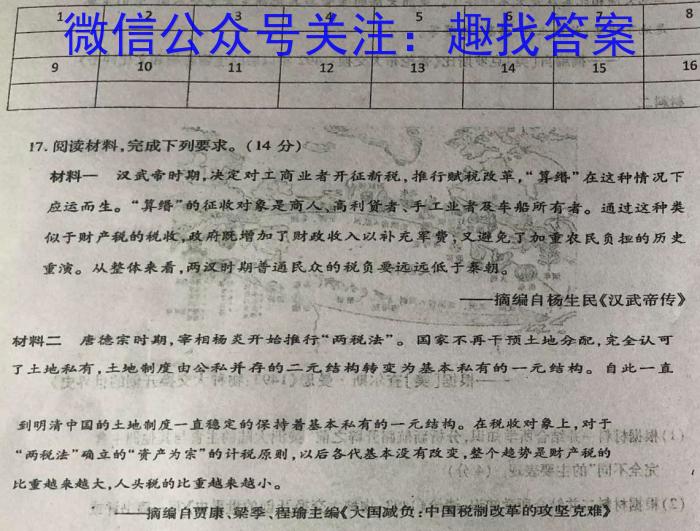 1 2 3 4 5 6 7 8
微信公众号关注：趣找答案
9 10 11 12 13 14 15 16
17. 阅读材料，完成下列要求。（14 分）
材料一 汉武帝时期，决定对工商业者开征新税，推行赋税改革，“算缗”在这种情况下
应运而生。“算缗”的征收对象是商人、高利贷者、手工业者及车船所有者。通过这种类
似于财产税的税收，政府既增加了财政收入以补充军费，又避免了加重农民负担的历史
重演。从整体来看，两汉时期普通民众的税负要远远低于秦朝。
——摘编自杨生民《汉武帝传》
材料二 唐德宗时期，宰相杨炎开始推行“两税法”。国家不再干预土地分配，完全认可
了土地私有，土地制度由公私并存的二元结构转变为基本私有的一元结构。自此一直
到明清中国的土地制度一直稳定的保持着基本私有的一元结构。在税收对象上，对于
“两税法”确立的“资产为宗”的计税原则，以后各代基本没有改变，整个趋势是财产税的
比重越来越大，人头税的比重越来越小。
——摘编自贾康、梁季、程瑜主编《大国减负：中国税制改革的攻坚克难》